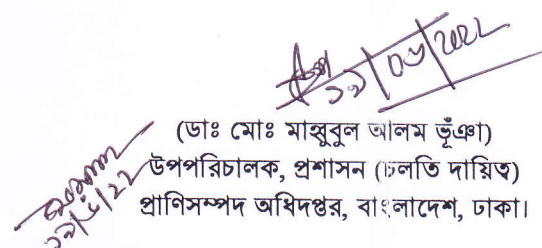 ২৯/০৬/২০২২
(ডাঃ মোঃ মাহবুবুল আলম ভূঁঞা)
উপপরিচালক, প্রশাসন (চলতি দায়িত্ব)
প্রাণিসম্পদ অধিদপ্তর, বাংলাদেশ, ঢাকা।